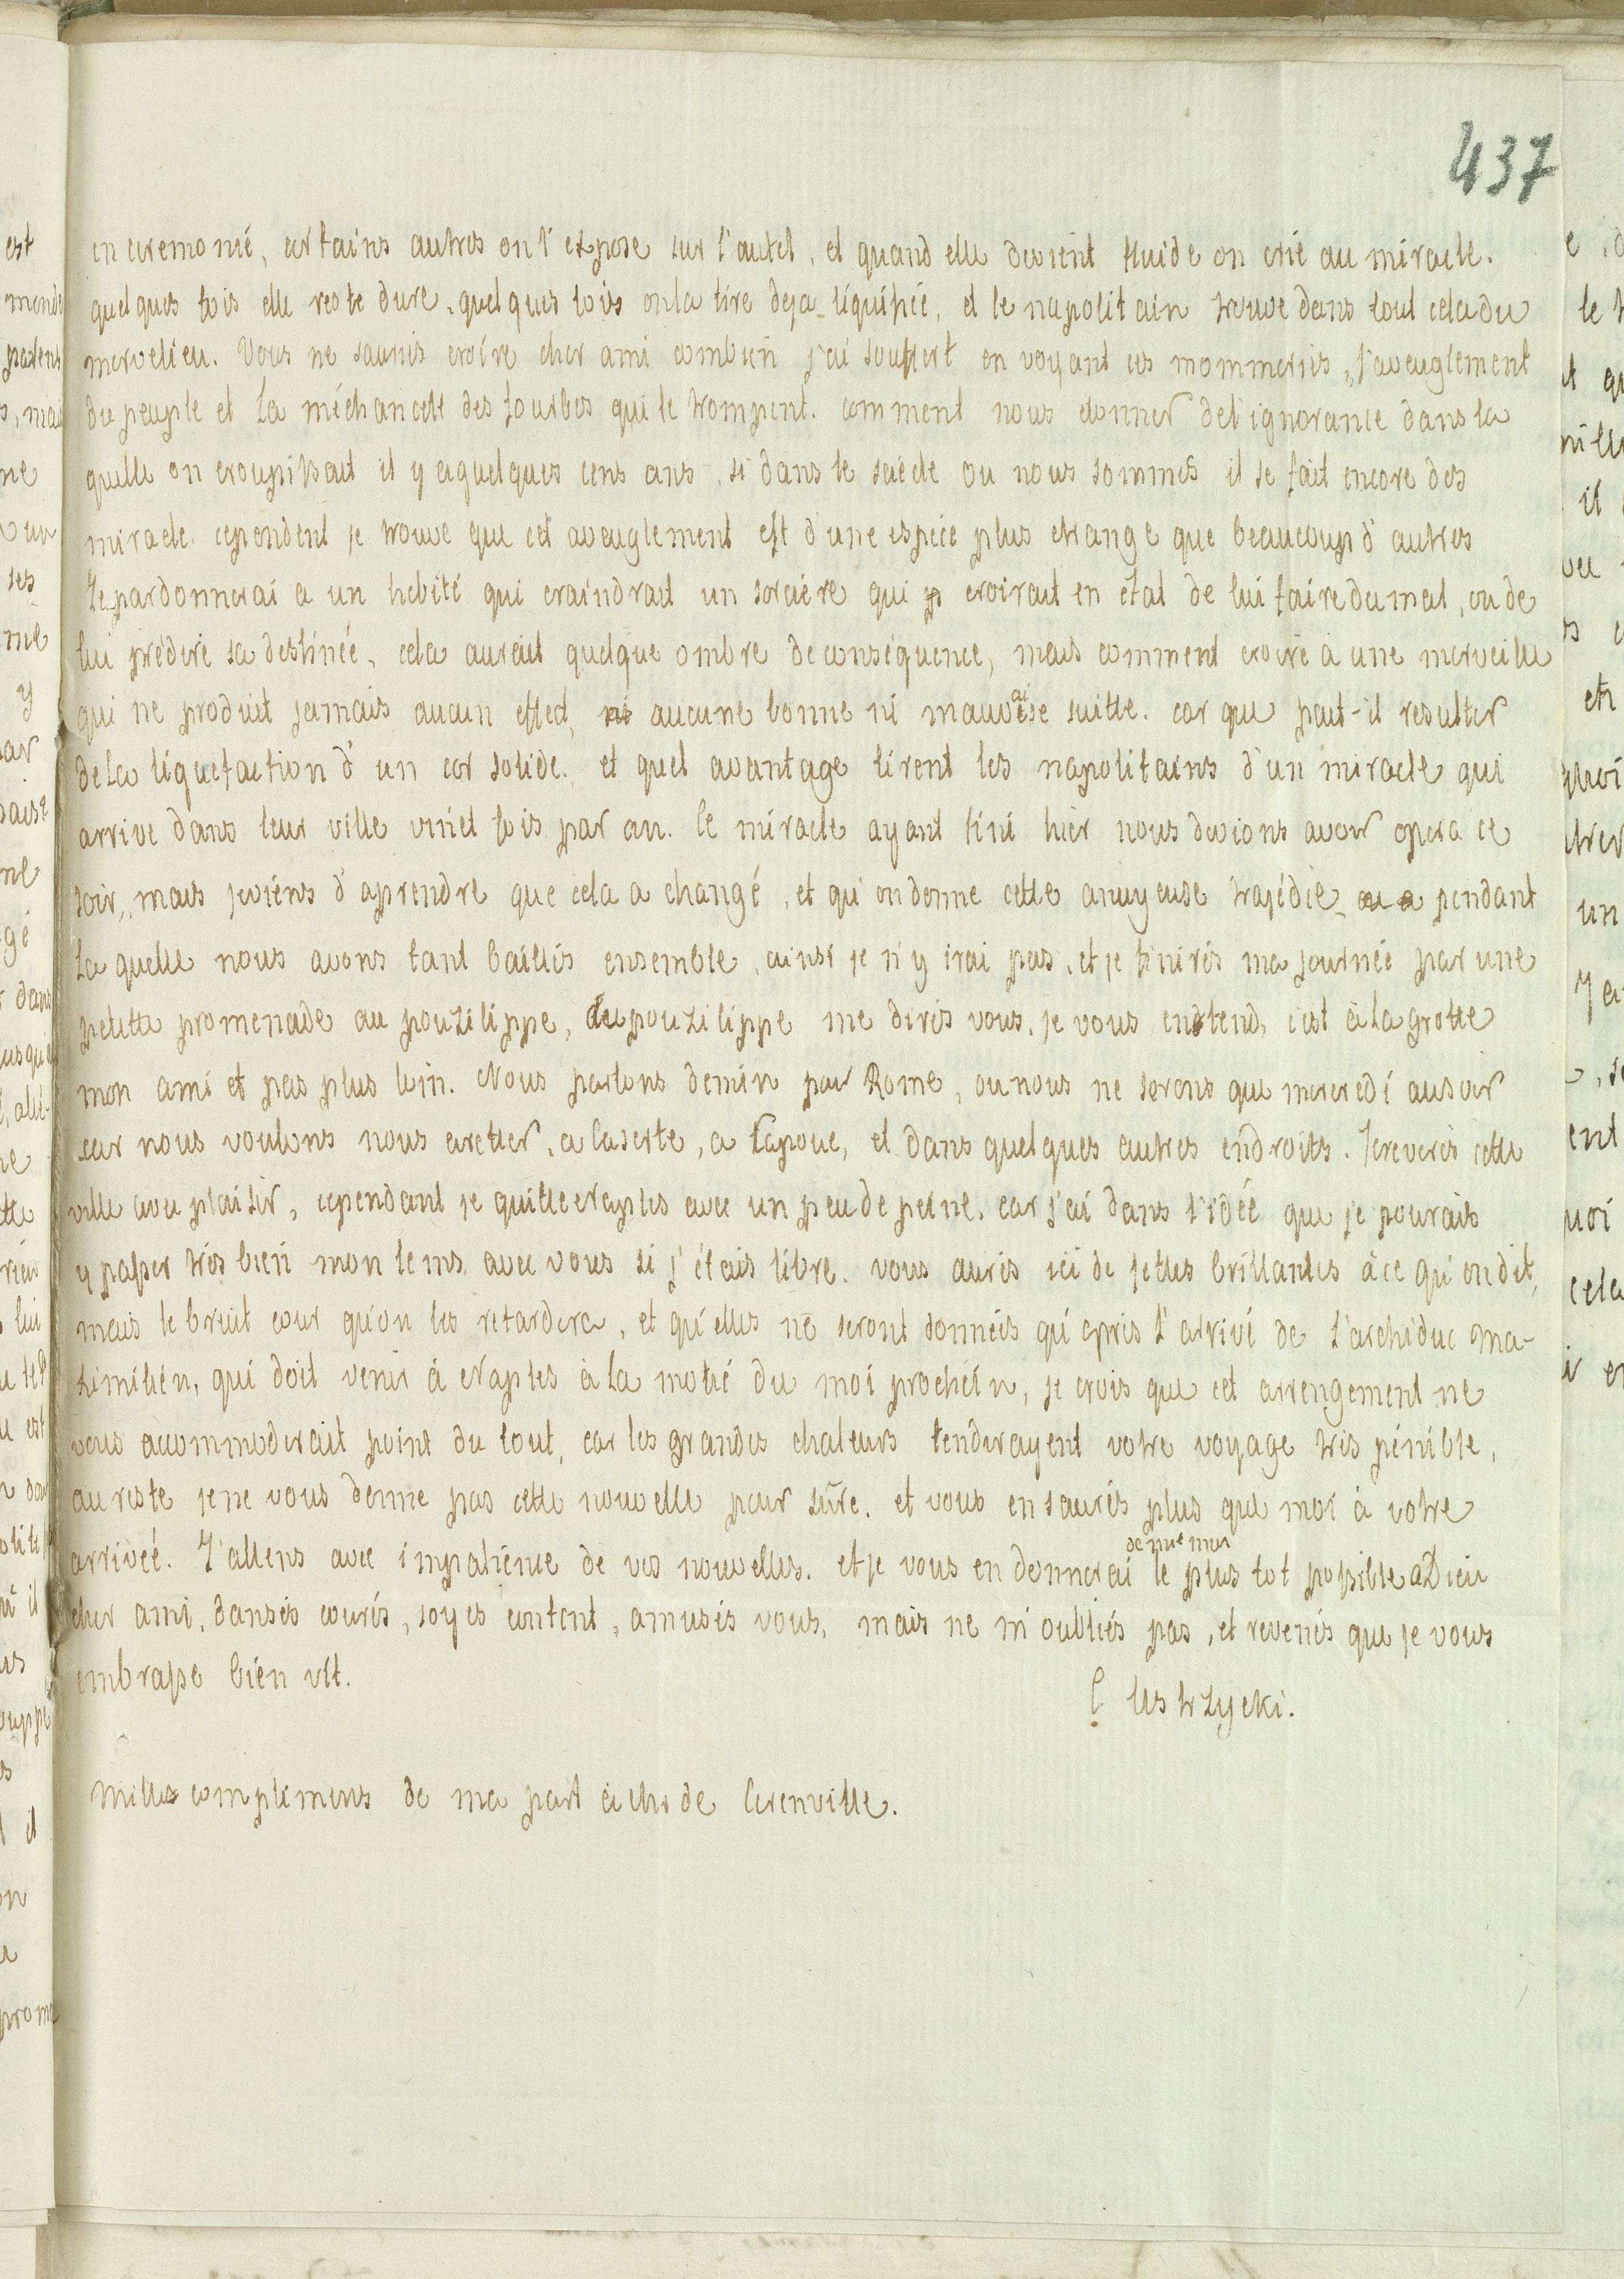 437
en ceremonié, certains autres on l'expose sur l'autel, et quand elle devient fluide on crié au miracle.
quelques fois elle reste dure, quelques fois on la tire deja liquifiée, et le napolitain trouve dans tout cela du
mervelieu. Vous ne sauriés croire cher ami combien j'ai souffert en voyant ces mommeriés, l'aveuglement
du peuple et la méchanceté des fourbes qui le trompent. comment nous etonner de l'ignorance dans la
quelle on croupissait il y a quelques cens ans, si dans le saiecle ou nous sommes il se fait encore des
miracle. cependent je trouve que cet aveuglement est d'une espéce plus etrange que beaucoup d'autres
Je pardonnerai a un hebité qui craindrait un sorciére qui croirait en etat de lui faire du mal, ou de
lui prédire sa destinée, cela aurait quelque ombre de conséquence, mais comment croire à une merveille
qui ne produit jamais aucun effect, ni aucune bonne ni mauvaise suitte. car que peut-il resulter
de la liquefaction d'un cor solide. et quel avantage tirent les napolitains d'un miracle qui
arrive dans leur ville vinct fois par an. le miracle ayant fini hier nous devions avoir opera ce
soir, mais je viéns d'aprendre que cela a changé, et qu'on donne cette anuyeuse trajédie pendant
la quelle nous avons tant baillés ensemble, ainsi je n'y irai pas, et je finirés ma journée par une
petitte promenade au pouzilippe, du pouzilippe me dirés vous, je vous entend, c'est à la grotte
mon ami et pas plus loin. Nous partons demin pour Rome, ou nous ne serons que mercredi au soir
car nous voulons nous aretter, a Caserte, a Capoue, et dans quelques autres endroits. Je reverés cette
ville avec plaisir, cependant je quitte Naples avec un peu de peine, car j'ai dans l'idée que je pourais
y passer trés bien mon tems avec vous si j'étais libre. vous aurés ici de fettes brillantes à ce qu'on dit,
mais le bruit cour qu'on les retardera, et qu'elles ne seront donnéés qu'aprés l'arrivé de l'archiduc Ma-
ximilién, qui doit venir à Naples à la motié du moi prochein, je crois que cet arrengement ne
vous accommoderait point du tout, car les grandes chaleurs renderayent votre voyage trés pénible,
au reste je ne vous donne pas cette nouvelle pour sûre. et vous en saurés plus que moi à votre
arrivéé. J'attens avec impatience de vos nouvelles. et je vous en donnerai le plus tot possible aDieu
cher ami, dansés courés, soyes content, amusés vous, mais ne m'oubliés pas, et revenés que je vous
embrasse bién vit.
C Ustrzycki.
Mille complimens de ma part à de Cerenville.